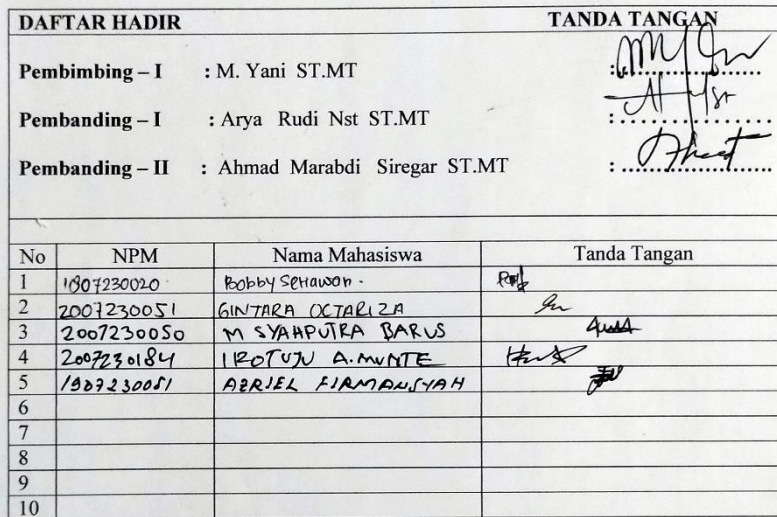 DAFTAR HADIR TANDA TANGAN
Pembimbing – I : M. Yani ST.MT :....................
Pembanding – I : Arya Rudi Nst ST.MT :....................
Pembanding – II : Ahmad Marabdi Siregar ST.MT :....................
No NPM Nama Mahasiswa Tanda Tangan
1 1807230020 Bobby Setiawan.
2 2007230051 GINTARA OCTARIZA
3 2007230050 M SYAHPUTRA BARUS
4 2007230184 IROTUJU A. MUNTE
5 1907230051 AZRIEL FIRMANSYAH
6
7
8
9
10